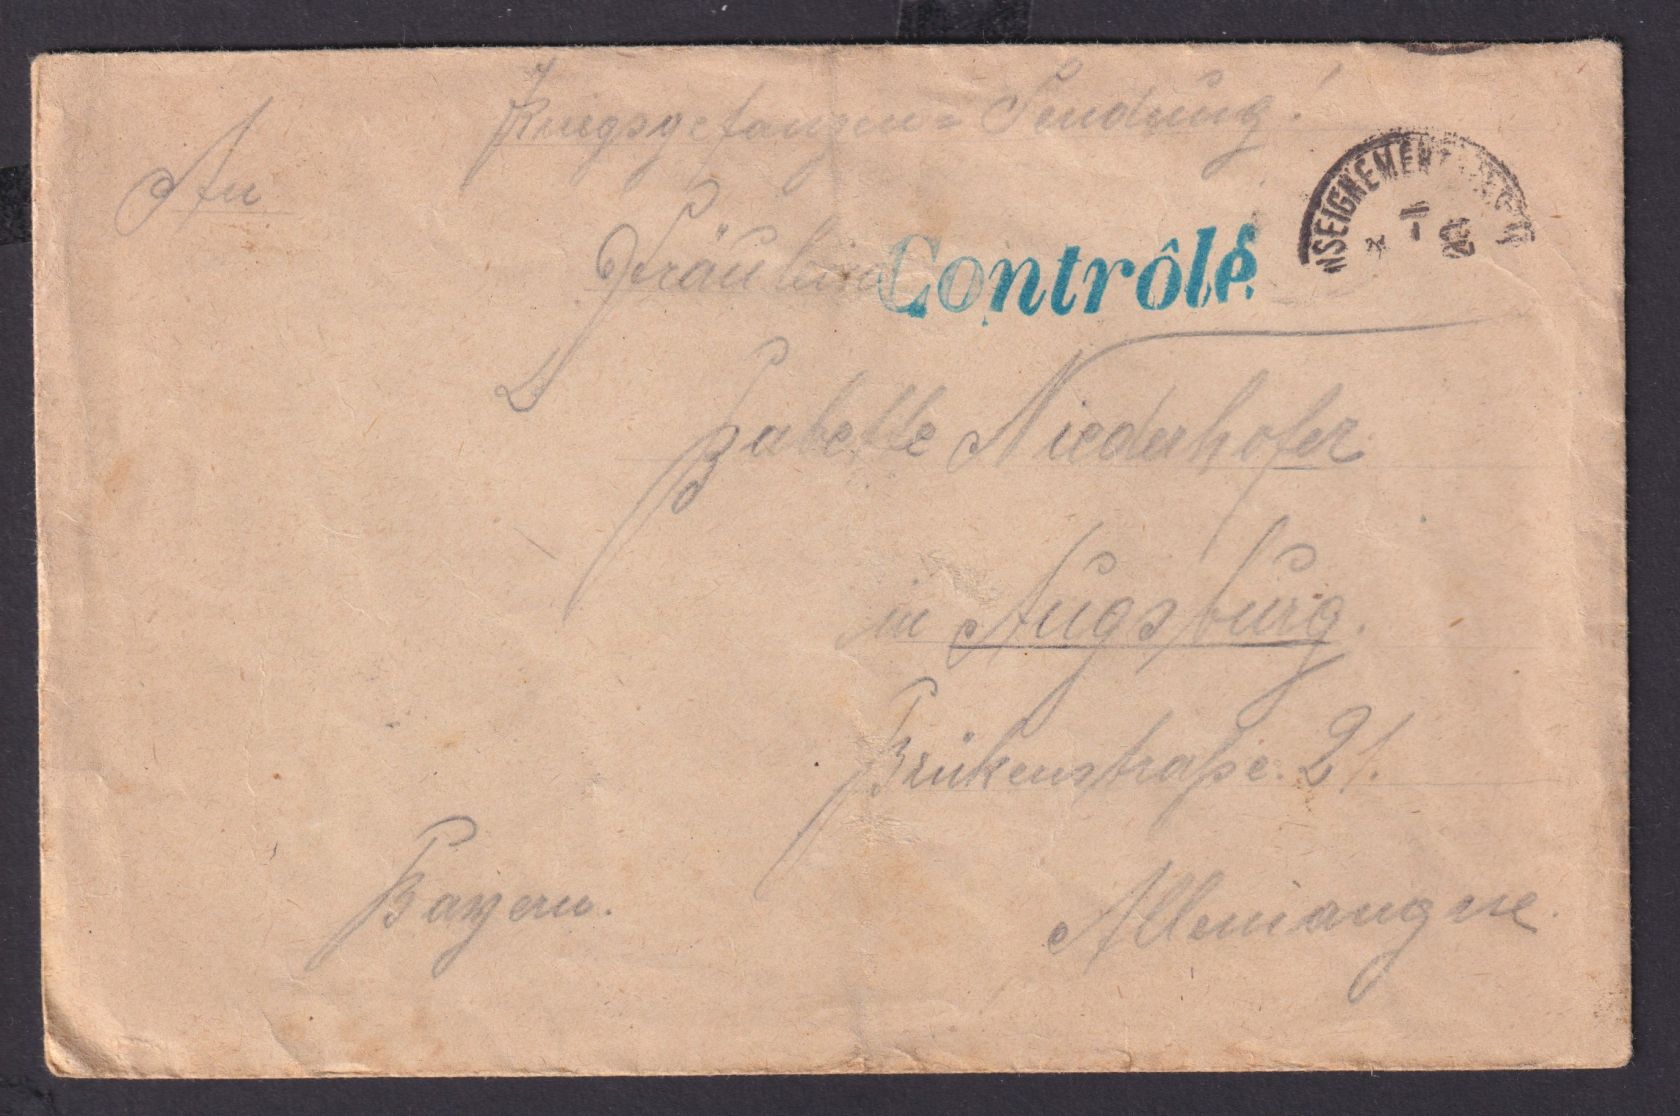 Kriegsgefangen= Sendung!
An
Fräulein
Contrôlé
Babette Niederhofer
in Augsburg.
Brükenstraße. 21.
Bayern.
Allemangne.